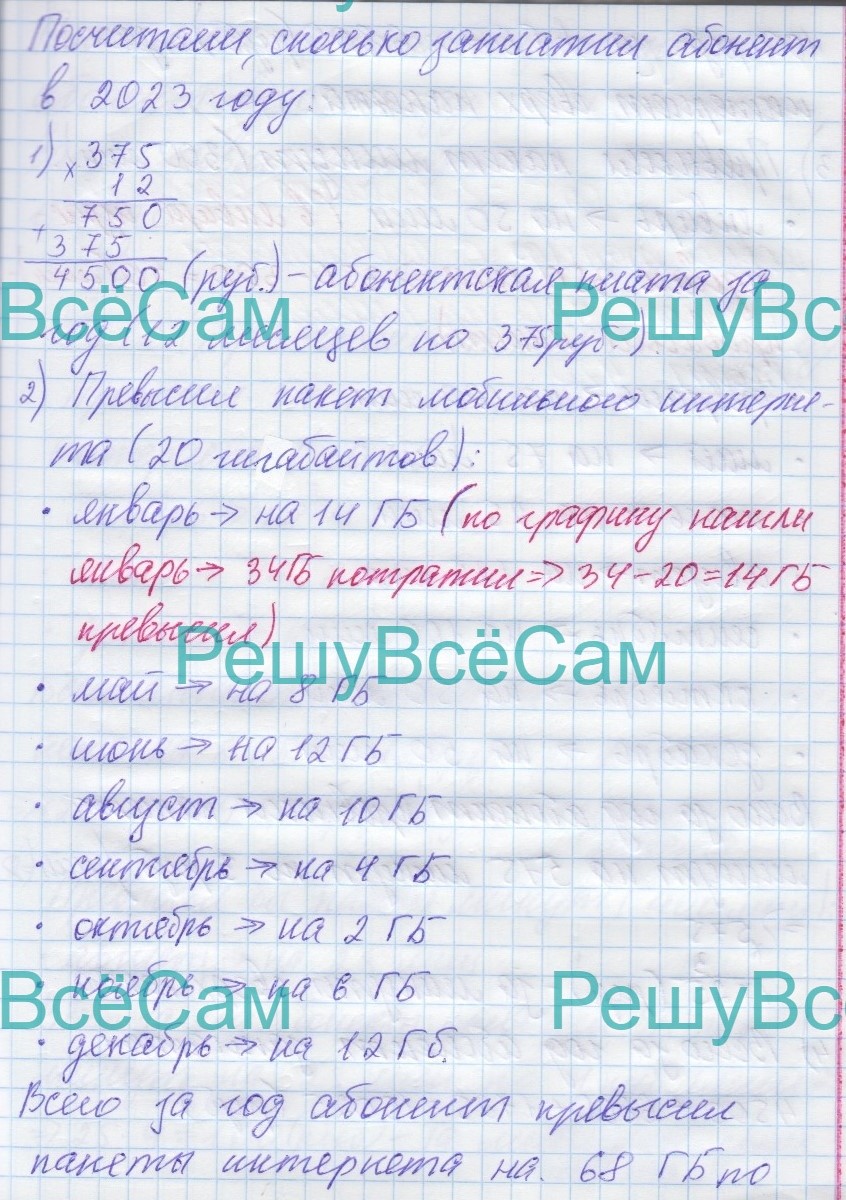 Посчитаем, сколько заплатил абонент
в 2023 году:
1) × 375
12
750
+ 375
4500 (руб.) – абонентская плата за
ВсёСам РешуВс
год (12 месяцев по 375 руб.).
2) Превысил пакет мобильного интерне-
та (20 гигабайтов):
• январь → на 14 ГБ (по графику нашли
январь → 34ГБ потратил => 34-20=14 ГБ
превысил)
РешуВсёСам
• май → на 8 ГБ
• июнь → на 12 ГБ
• август → на 10 ГБ
• сентябрь → на 4 ГБ
• октябрь → на 2 ГБ
• ноябрь → на 6 ГБ
ВсёСам РешуВс
• декабрь → на 12 Гб.
Всего за год абонент превысил
пакеты интернета на. 68 ГБ по